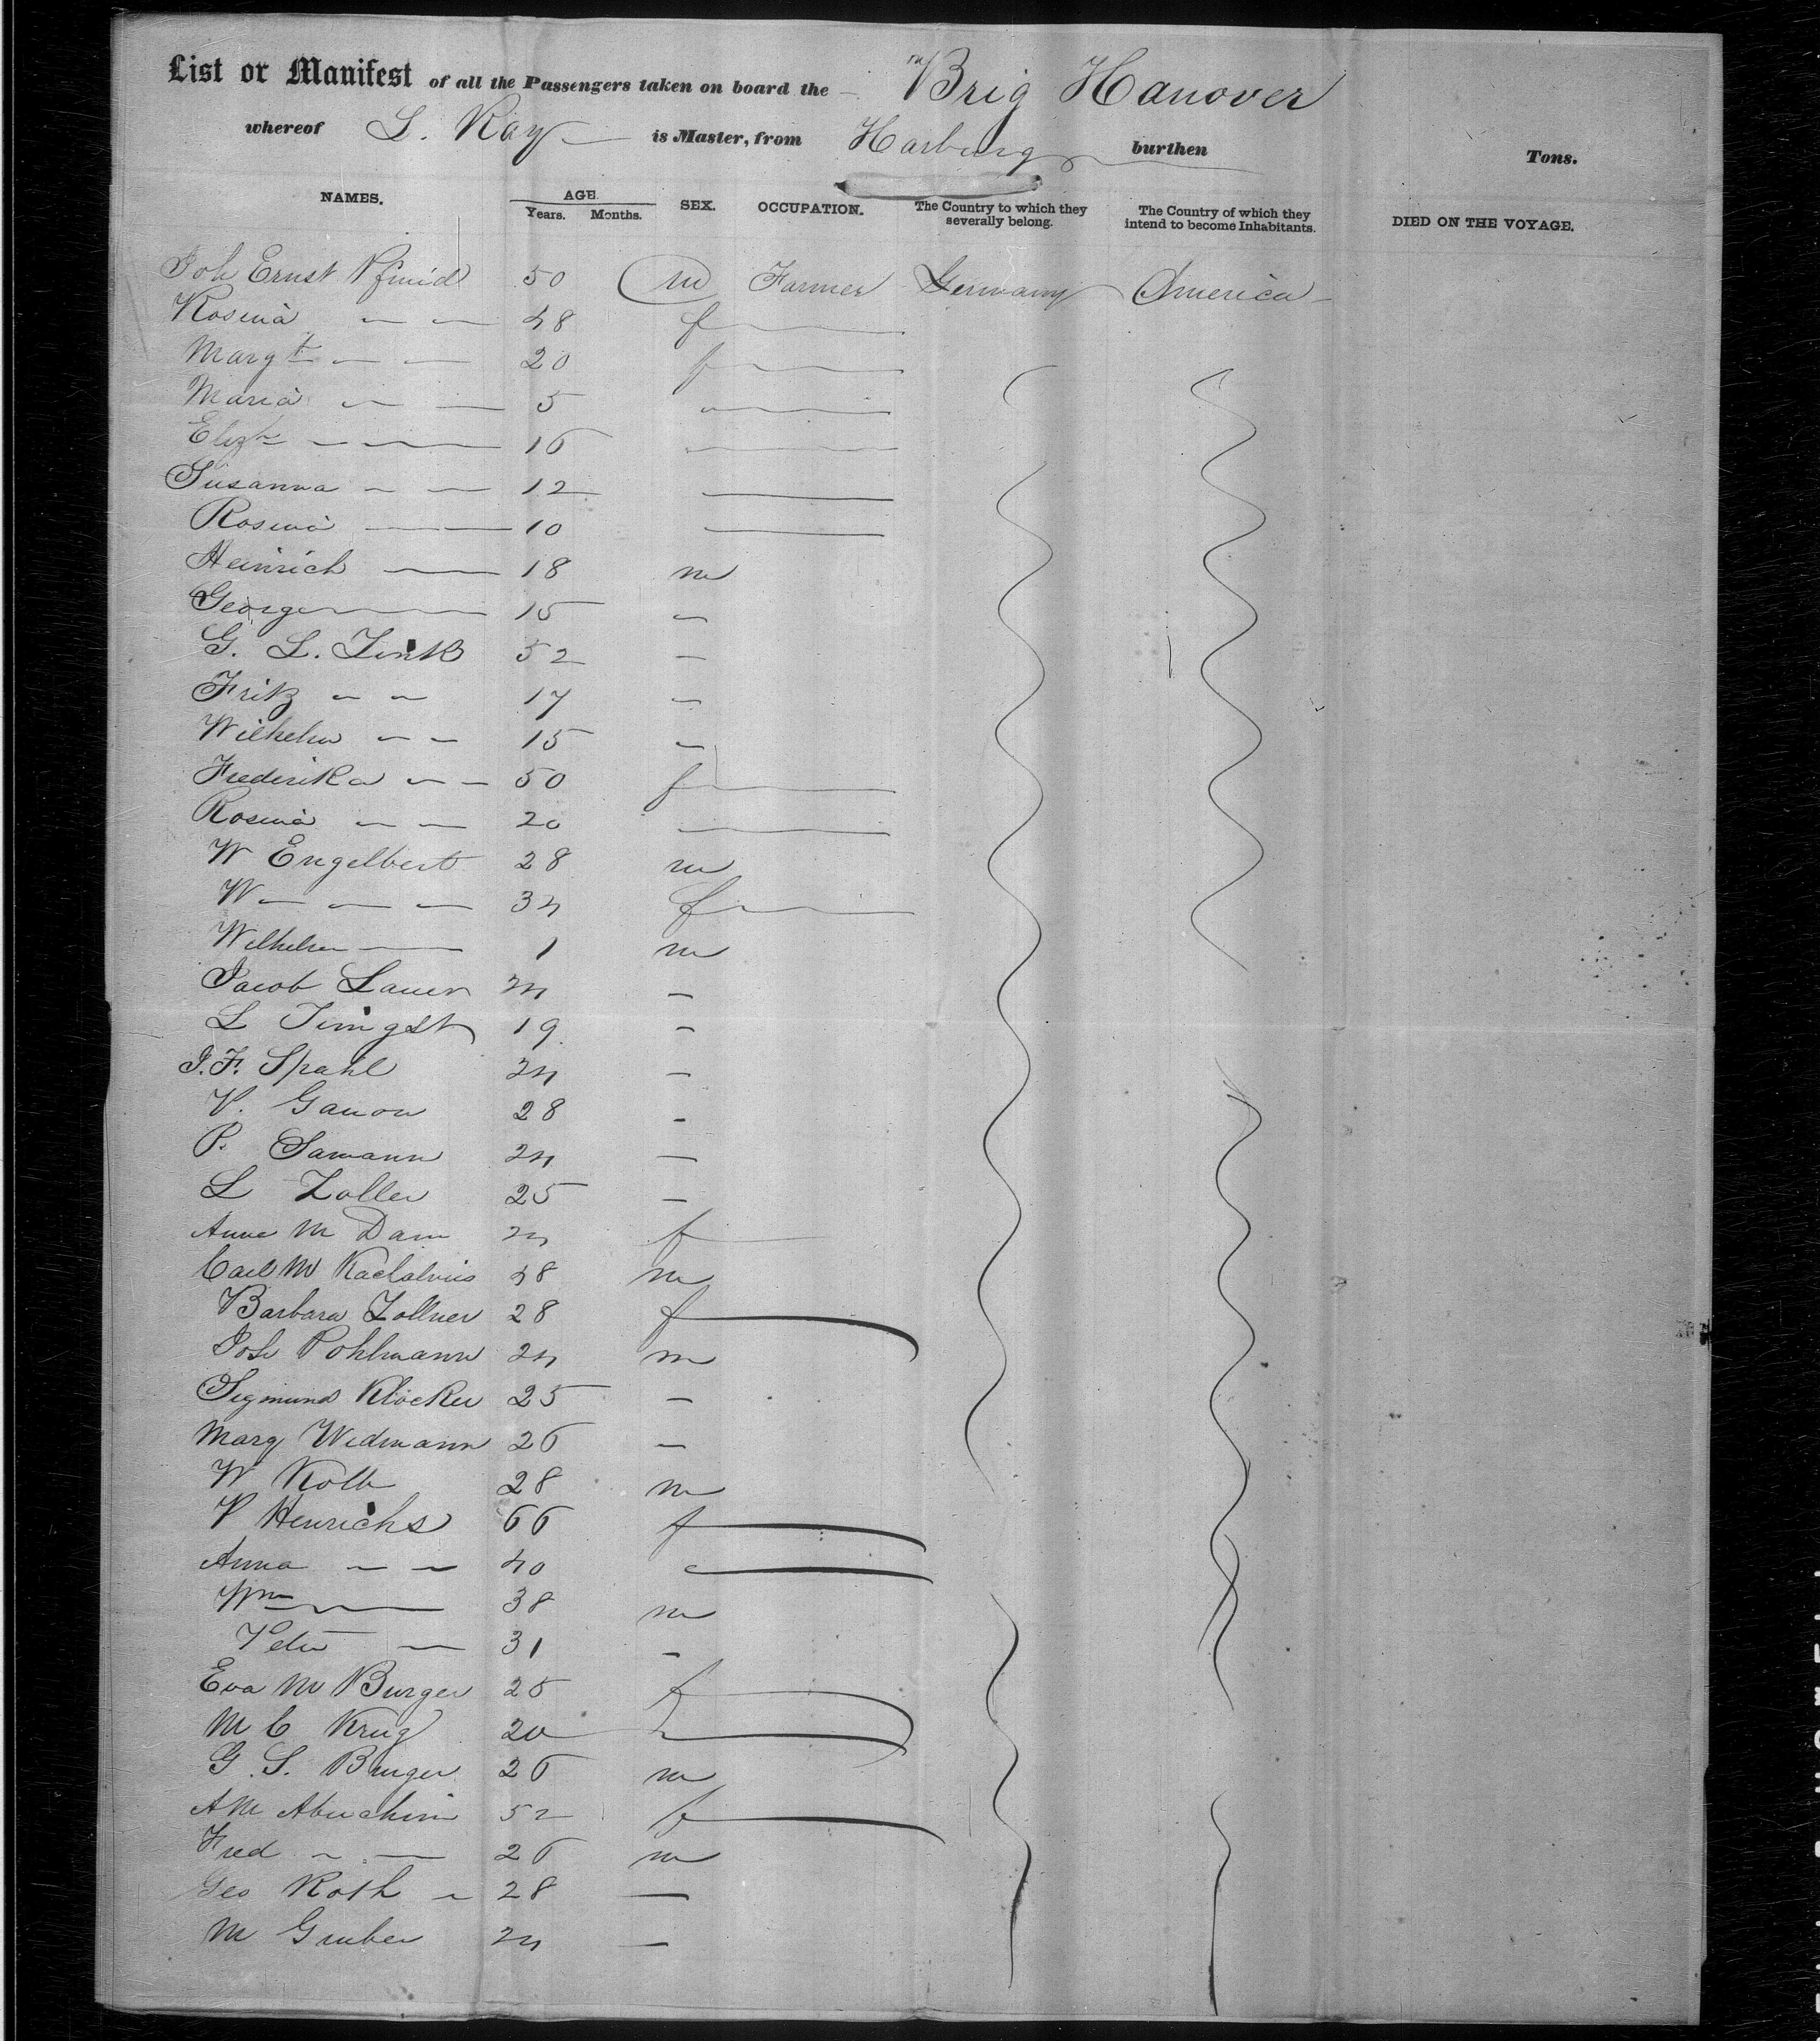 List or Manifest of all the Passengers taken on board the Brig Hanover
whereof L. Kay is Master, from Harburg burthen Tons.
NAMES. AGE. Years. Months. SEX. OCCUPATION. The Country to which they severally belong. The Country of which they intend to become Inhabitants. DIED ON THE VOYAGE.
Joh Ernst 50 m Farmer Germany America
Rosina — — 48 f
Margt — — 20 f
Maria — — 5
Elizth — — 16
Susanna — — 12
Rosina — — 10
Heinrich — 18 m
George — 15 —
G. L. Link 52 —
Fritz — — 17 —
Wilhelm — — 15 —
Frederika — — 50 f
Rosina — — 20
W Engelbert 28 m
W — — — 34 f
Wilhelm — 1 m
Jacob Lauer 24 —
L 19 —
J. F. Spahl 24 —
V. 28 —
P. Samann 24 —
L Zoller 25 —
Anna M Dam 24 f
Carl M 48 m
Barbara Zollner 28 f
Joh Pohlmann 24 m
Sigmund Klöcker 25 —
Marg Widmann 26 —
W Kolb 28 m
P Henrichs 66 f
Anna — — 40
Wm — — 38 m
Peter — 31 —
Eva M Burger 25 f
M C Krug 20
G. S. Burger 26 m
A M 52 f
Fred — — 26 m
Geo Roth — 28 —
M Gruber 24 —